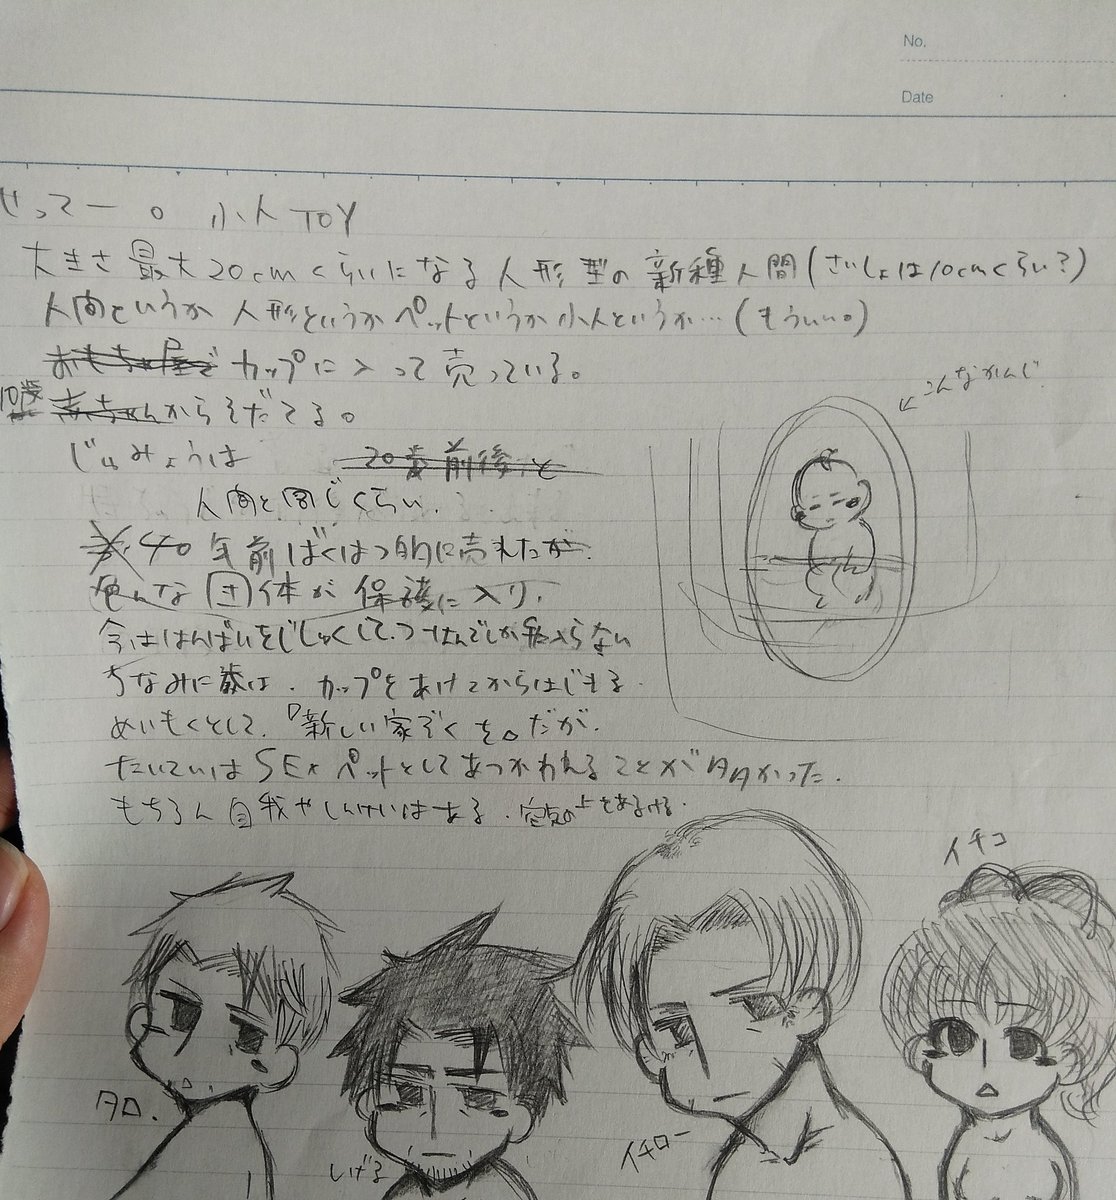 No.
Date
せってー。小人TOY
大きさ最大20cmくらいになる人形型の新種人間(さいしょは10cmくらい?)
人間というか人形というかペットというか小人というか…(もういい。)
おもちゃ屋でカップに入って売っている。
こんなかんじ
10歳 赤ちゃんからそだてる。
じゅみょうは 20歳前後と
人間と同じくらい.
40年前ばくはつ的に売れたが
色んな団体が保護に入り、
今ははんばいをじしゅくして
ちなみに歳は、カップをあけてからはじまる.
めいもくとして、『新しい家ぞくを。だが、
たいていはSEXペットとしてあつかわれることが多かった.
もちろん自我やしんけいはある.
イチコ
タロ.
しげる
イチロー